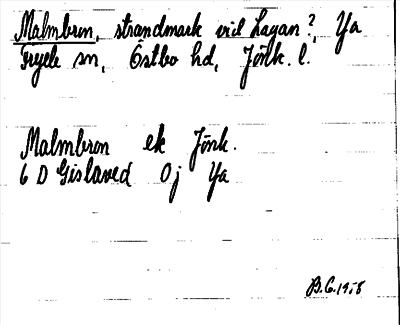 Malmbron, strandmark vid Lagan?, Ya
Fryele sn, Östbo hd, Jönk. l.
Malmbron ek Jönk.
6 D Gislaved 0j Ya
B.G. 1958